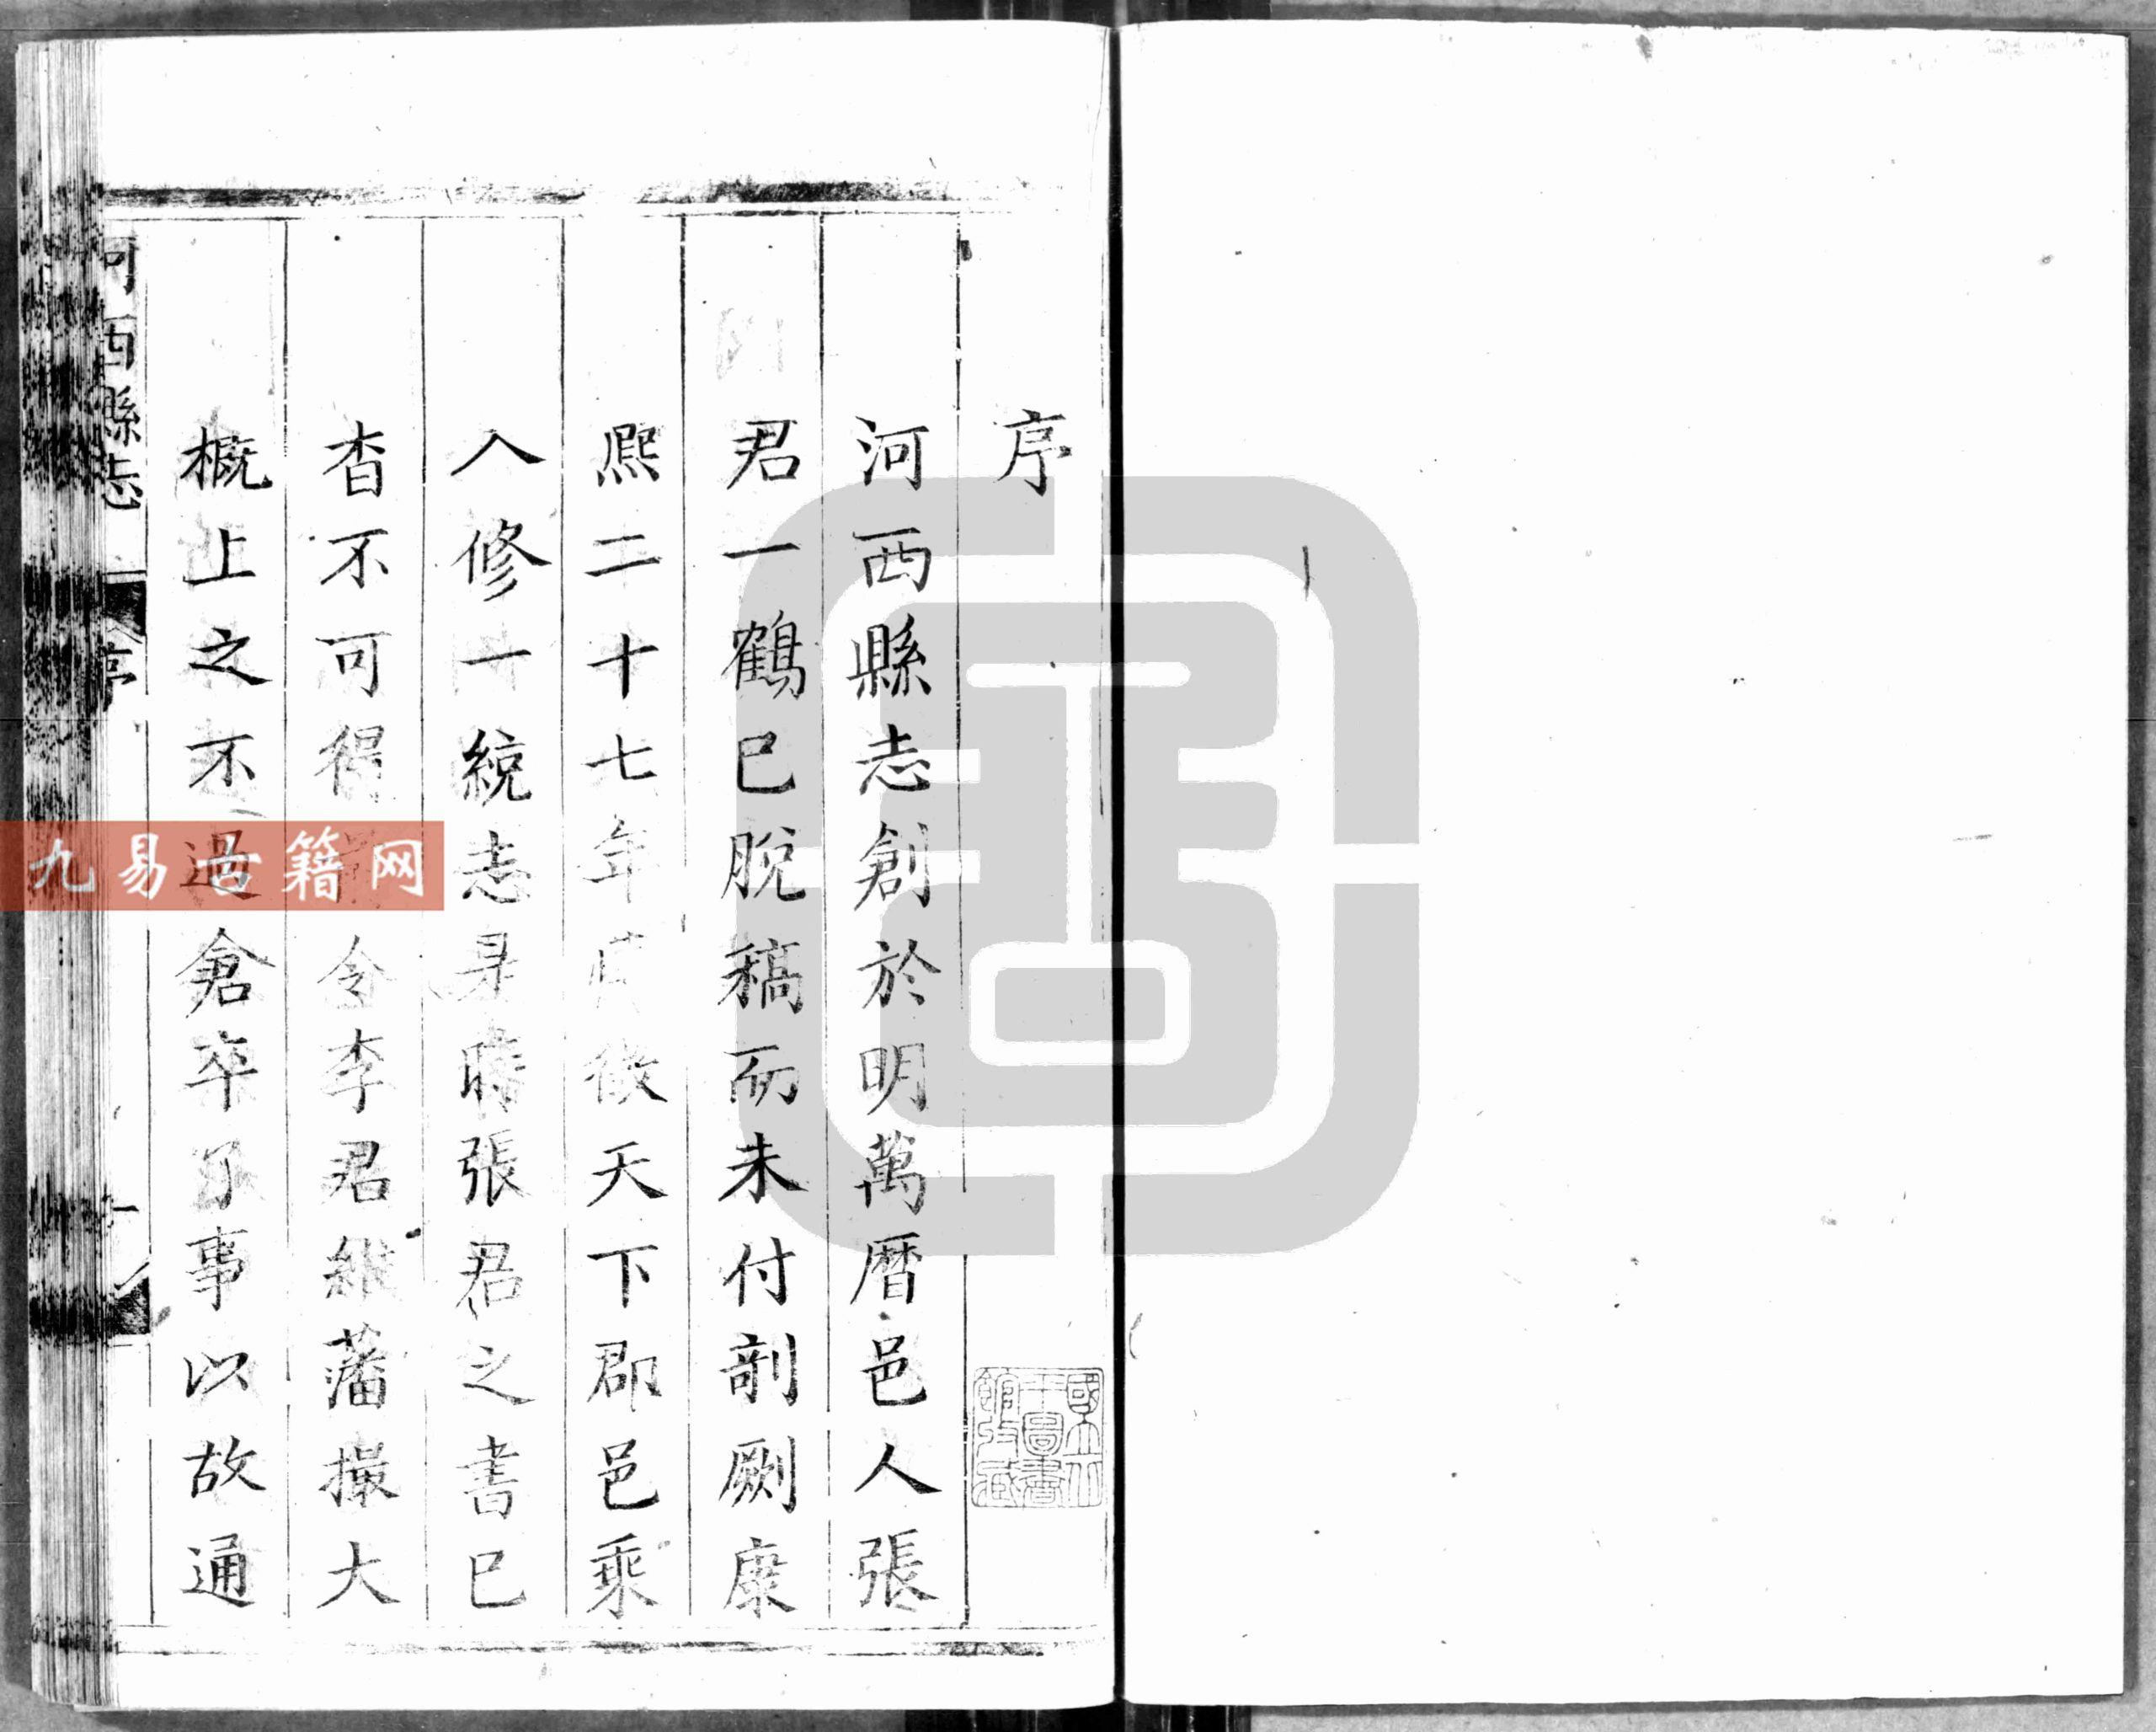 序
河西縣志創於明萬曆邑人張
君一鶴已脫稿而未付剞劂康
熈二十七年徵天下郡邑乘
入修一統志是時張君之書已
杳不可得令李君繼藩撮大
概上之不過倉卒了事以故通
河西縣志
序
一
國立北平圖書館收藏
九易古籍网